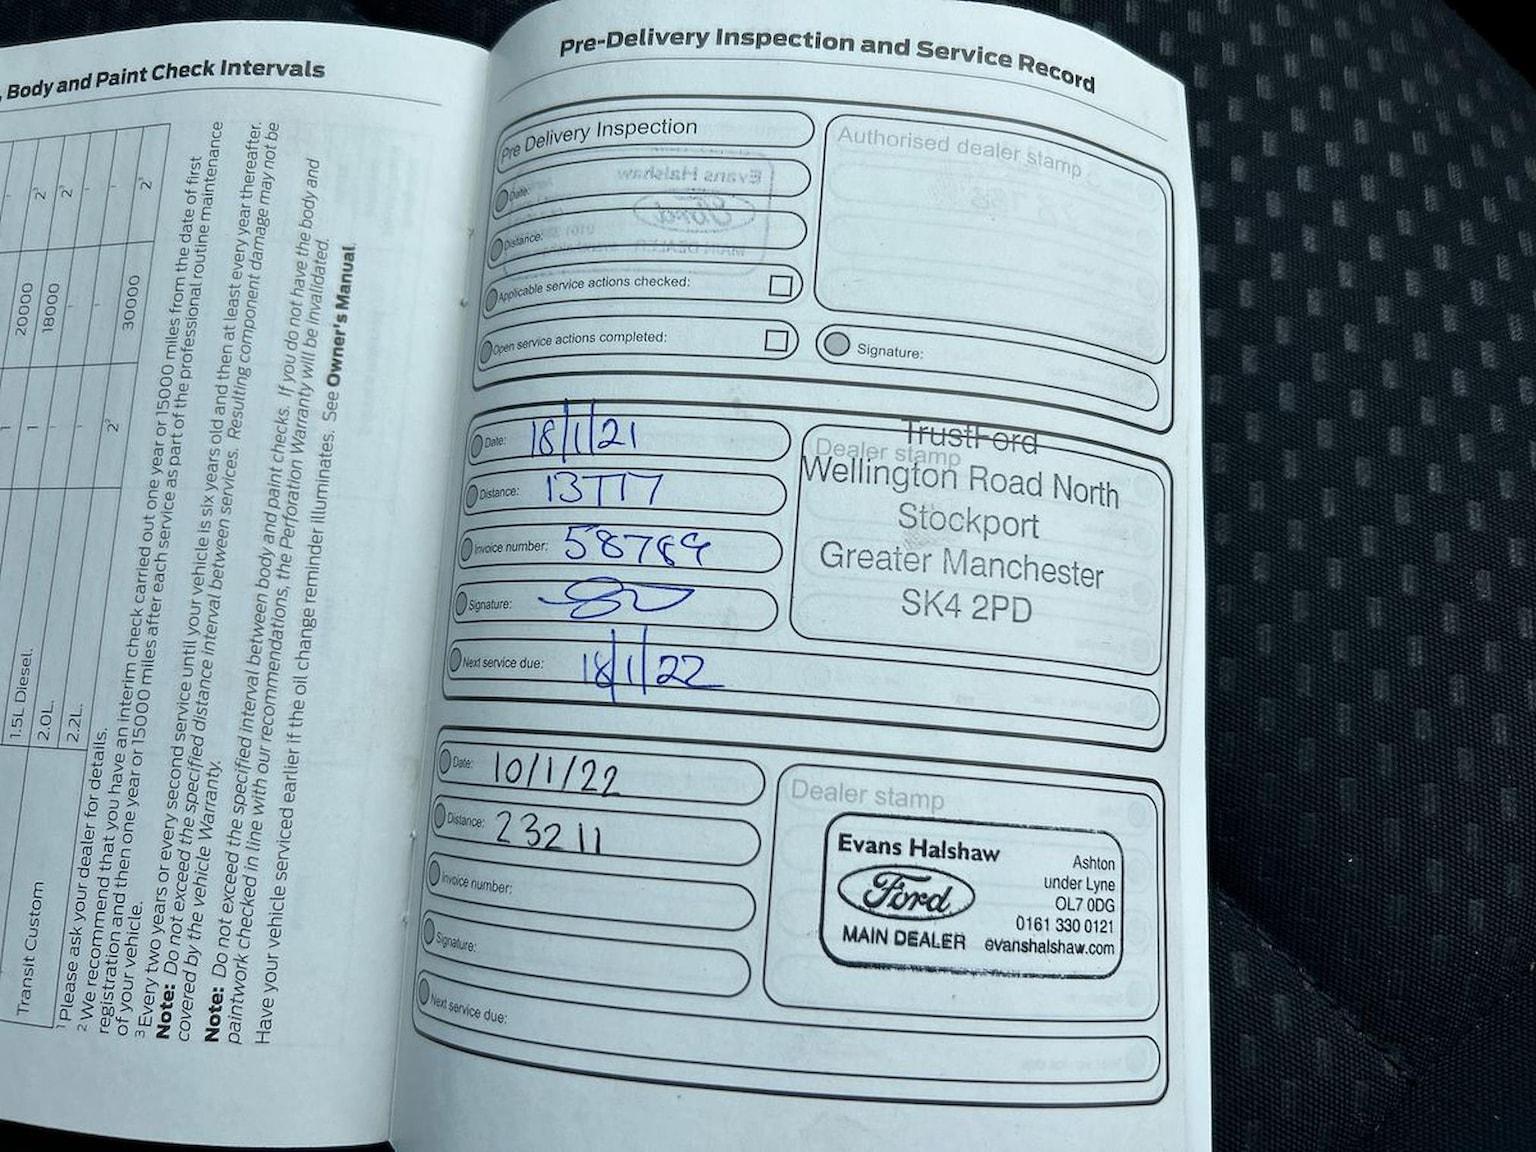 , Body and Paint Check Intervals
1
20000
2³
1
18000
2³
-
-
-
-
-
-
2³
30000
2³
1.5L Diesel.
2.0L.
2.2L.
Transit Custom
¹ Please ask your dealer for details.
² We recommend that you have an interim check carried out one year or 15000 miles from the date of first
registration and then one year or 15000 miles after each service as part of the professional routine maintenance
of your vehicle.
³ Every two years or every second service until your vehicle is six years old and then at least every year thereafter.
Note: Do not exceed the specified distance interval between services. Resulting component damage may not be
covered by the vehicle Warranty.
Note: Do not exceed the specified interval between body and paint checks. If you do not have the body and
paintwork checked in line with our recommendations, the Perforation Warranty will be invalidated.
Have your vehicle serviced earlier if the oil change reminder illuminates. See Owner's Manual.
Pre-Delivery Inspection and Service Record
Pre Delivery Inspection
Date:
Distance:
Applicable service actions checked:
Open service actions completed:
Authorised dealer stamp
Signature:
Date: 18/1/21
Distance: 13777
Invoice number: 58789
Signature:
Next service due: 18/1/22
Dealer stamp
TrustFord
Wellington Road North
Stockport
Greater Manchester
SK4 2PD
Date: 10/1/22
Distance: 23211
Invoice number:
Signature:
Next service due:
Dealer stamp
Evans Halshaw
Ford
MAIN DEALER
Ashton
under Lyne
OL7 0DG
0161 330 0121
evanshalshaw.com